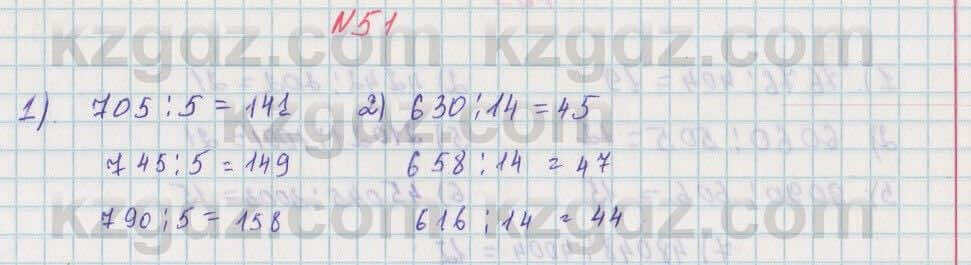 N51
1). 705:5=141 2) 630:14=45
745:5=149 658:14=47
790:5=158 616:14=44
kzgdz.com kzgdz.com